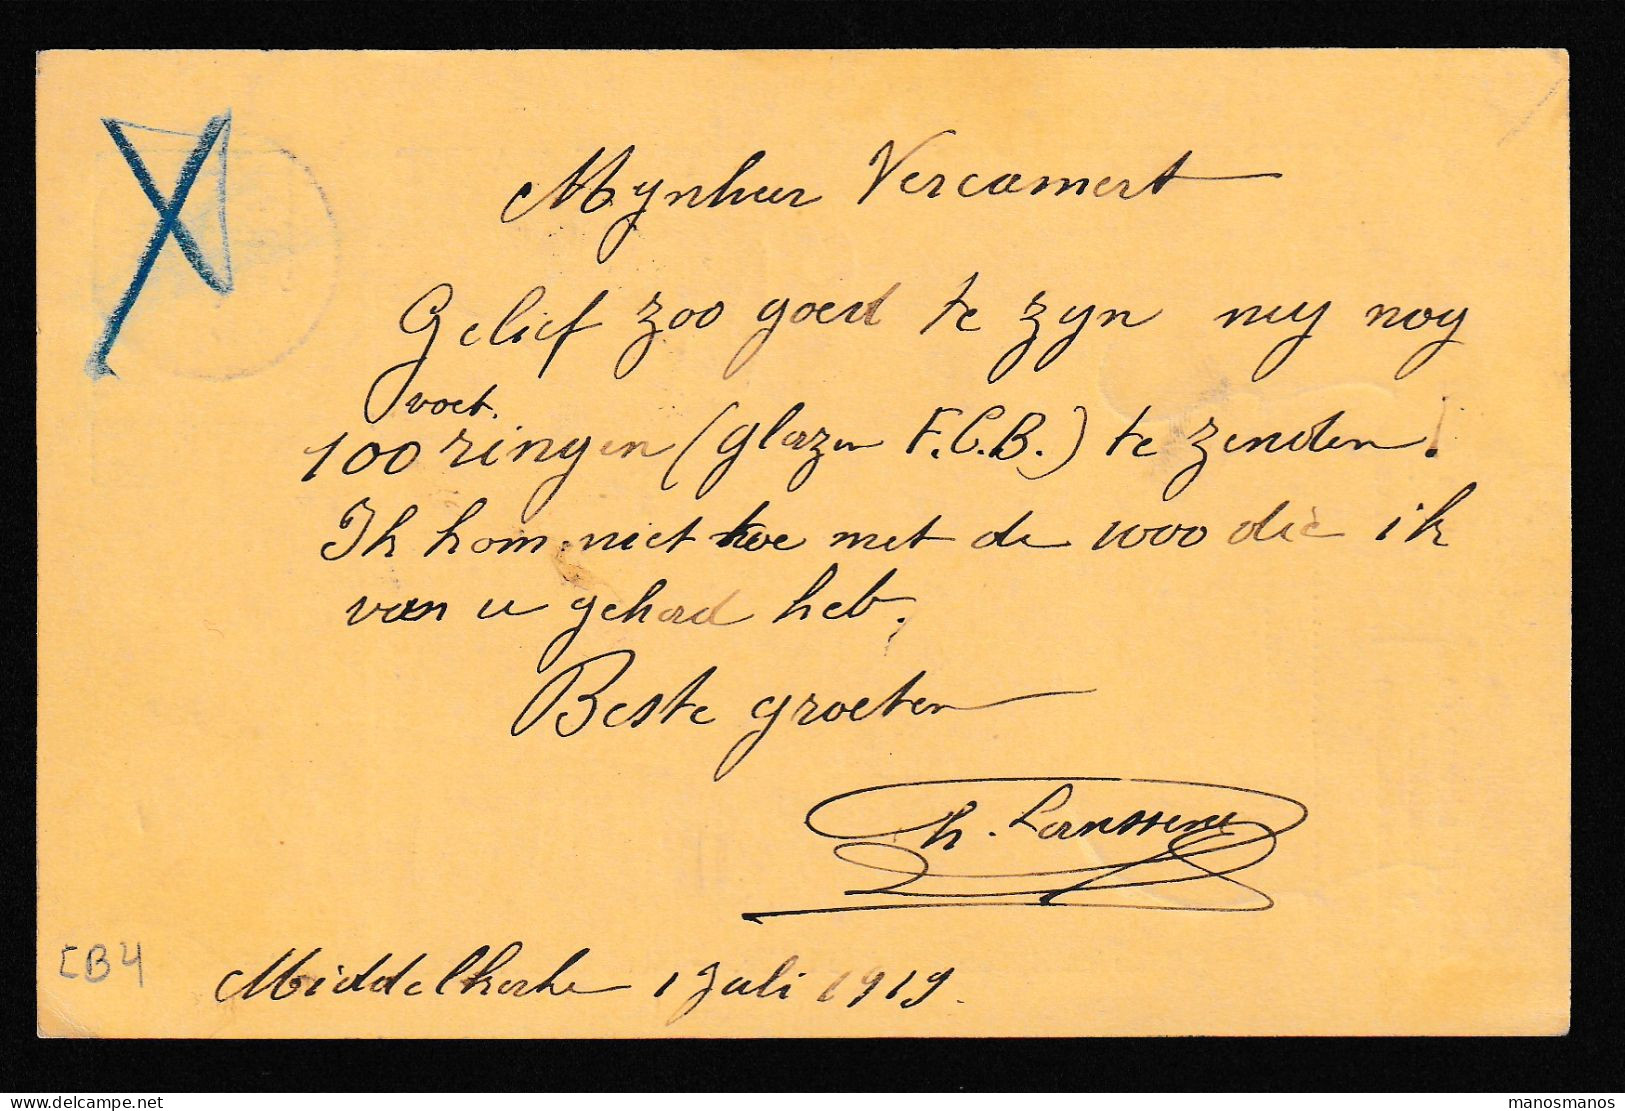 Mynheer Vercamert
Gelief zoo goed te zyn my nog
voet.
100 ringen (glazen F.C.B.) te zenden!
Ik kom niet toe met de 1000 die ik
van u gehad heb.
Beste groeten
h. Janssens
Middelkerke 1 Juli 1919.
CB4
manosmanos